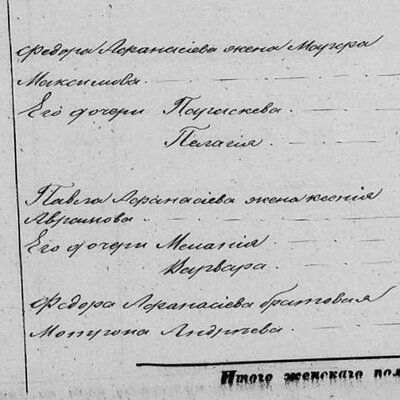 Федора Афанасіева жена Мавра
Максимова.
Его дочери Параскева.
Пелагія.
Павла Афанасіева жена Ксенія
Аврамова
Его дочери Меланія
Варвара.
Федора Афанасіева братовая
Матрона Андреева.
Итого женскаго пол